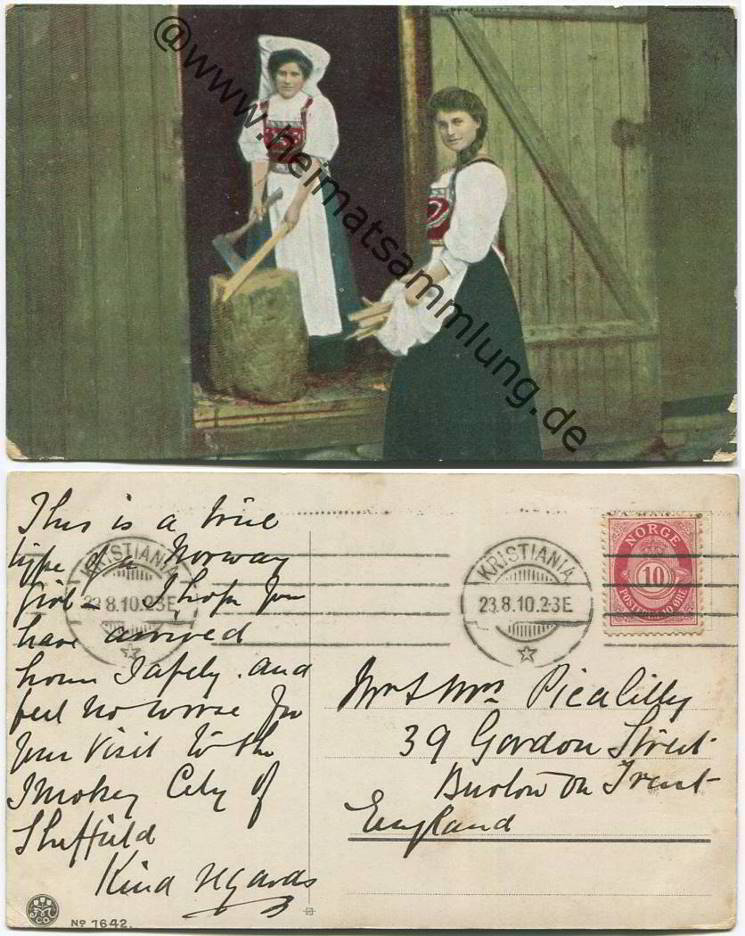 @www.heimatsammlung.de
This is a true
type of a Norway
Girl - I hope you
have arrived
home safely. and
feel no worse for
your visit to the
Smokey City of
Sheffield
Kind regards
KRISTIANIA
23.8.10.2-3E
KRISTIANIA
23.8.10.2-3E
NORGE
10
POSTFRIM. 10 ØRE
Mr & Mrs Picalilly
39 Gordon Street
Burton on Trent
England
No 7642.